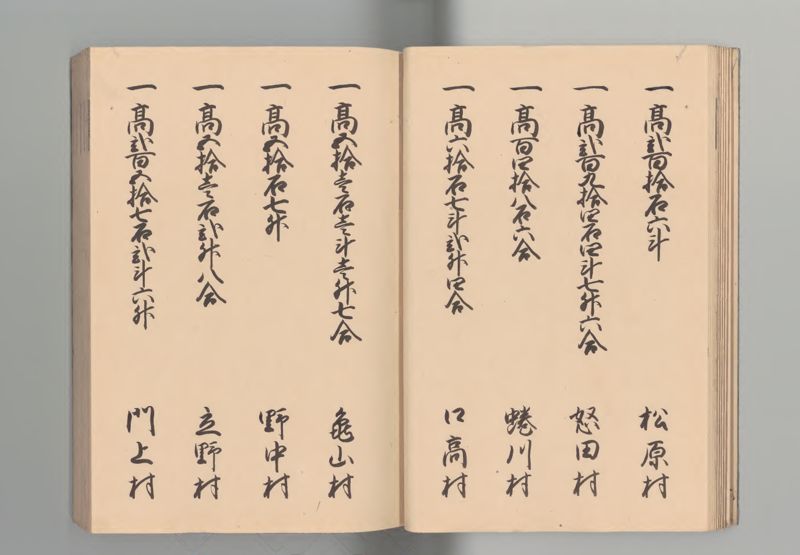 一 高弐百拾石六斗 松原村
一 高弐百九拾四石四斗七升六合 怒田村
一 高百四拾八石六合 蜷川村
一 高六拾石七斗弐升四合 口高村
一 高五拾壱石壱斗壱升七合 亀山村
一 高五拾石七升 野中村
一 高五拾壱石弐升八合 立野村
一 高弐百五拾七石弐斗六升 門上村